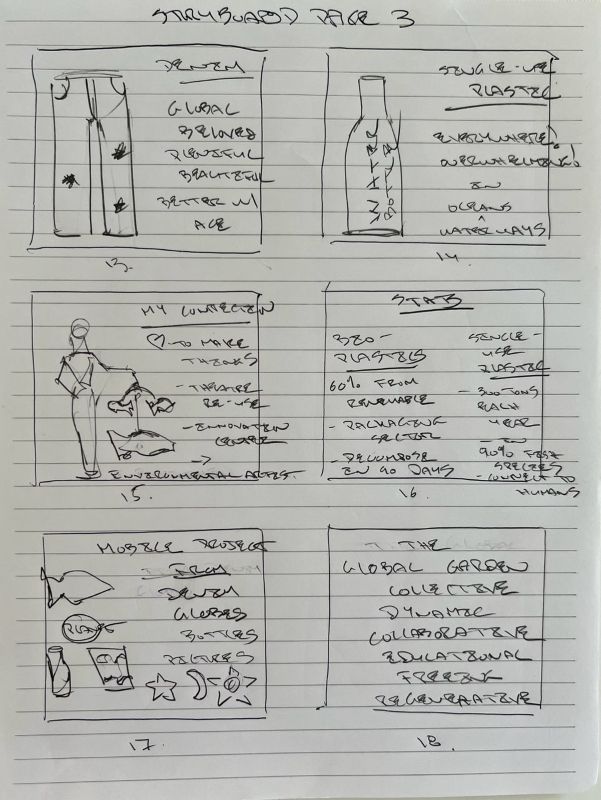 STORYBOARD PAGE 3
DENIM
GLOBAL
BELOVED
PLENTIFUL
BEAUTIFUL
BETTER W/
AGE
13.
SINGLE-USE
PLASTIC
EVERYWHERE!
OVERWHELMING!
IN
OCEANS
^
WATERWAYS
WATER
BOTTLE
14.
MY CONNECTION
♡-TO MAKE
THINGS
-THEATRE
RE-USE
-INNOVATION
CENTRE
→
ENVIRONMENTAL ARTIST.
15.
STATS
BIO-
PLASTICS
60% FROM
RENEWABLE
- PACKAGING
SECTOR
- DECOMPOSE
IN 90 DAYS
SINGLE-
USE
PLASTIC
- 300 TONS
EACH
YEAR
- IN
90% FISH
SPECIES
- CONNECT TO
HUMANS
16.
MOBILE PROJECT
FROM
DENIM
GLOBES
BOTTLES
PICTURES
17.
THE
GLOBAL GARDEN
COLLECTIVE
DYNAMIC
COLLABORATIVE
EDUCATIONAL
FREEING
REGENERATIVE
18.